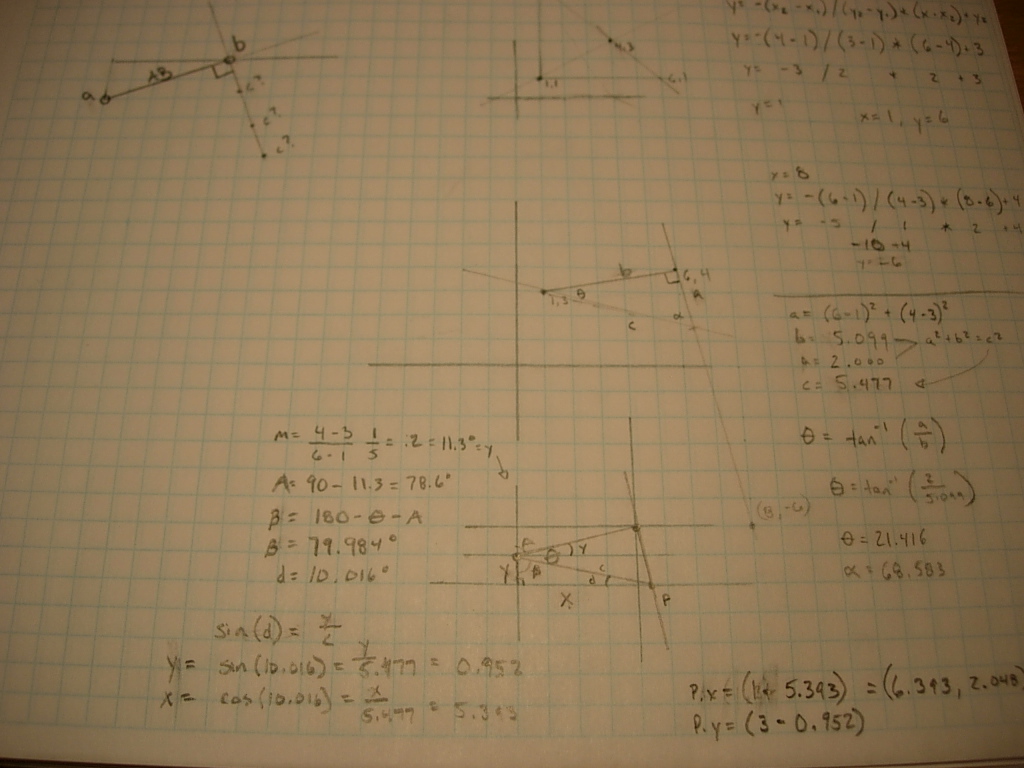 b
AB
a
c?
c?
c?
4,3
1,1
6,1
y = -(x₂ - x₁) / (y₂ - y₁) * (x - x₂) + y₂
y = -(4-1) / (3-1) * (6-4)+3
y = -3 / 2 * 2 + 3
y = 1
x = 1, y = 6
x = 8
y = -(6-1) / (4-3) * (8-6)+4
y = -5 / 1 * 2 +4
-10 +4
y = -6
b
6,4
1,3
θ
A
c
α
(8,-6)
a = (6-1)² + (4-3)²
b = 5.099
a² + b² = c²
A = 2.000
c = 5.477
θ = tan⁻¹ (a/b)
θ = tan⁻¹ (2/5.099)
θ = 21.416
α = 68.583
m = 4-3/6-1 1/5 = .2 = 11.3° = y
A = 90 - 11.3 = 78.6°
B = 180 - θ - A
B = 79.984°
d = 10.016°
θ
y
Y
B
c
d
X
P
sin(d) = y/c
y = sin(10.016) = y/5.477 = 0.952
X = cos(10.016) = x/5.477 = 5.393
P.x = (1+ 5.393) = (6.393, 2.048)
P.y = (3 - 0.952)